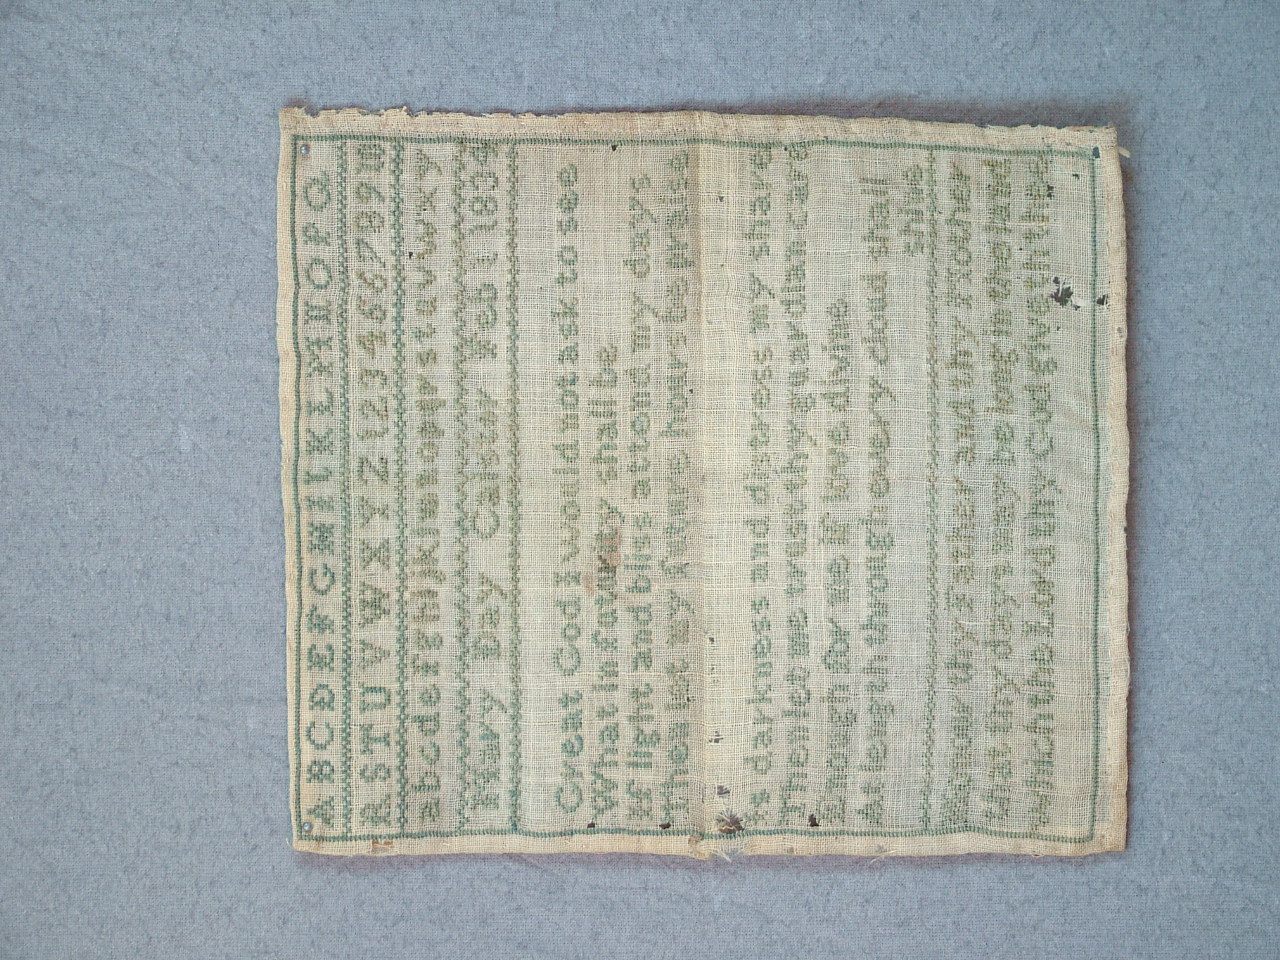 A B C D E F G H I K L M N O P Q
R S T U V W X Y Z 1 2 3 4 5 6 7 8 9 10
abcdefghijklmnopqrstuvwxy
Mary Day Caistor Feb 1
Great God I would not ask to see
What in futurey shall be
If light and bliss attend my days
Then let my future hours be praise
Is darkness and distress my share
Then let me trust thy guardian care
Enough for me if love divine
At length through every cloud shall
shine
Honour thy Father and thy Mother
that thy days may be long in the land
which the Lord thy God giveth thee